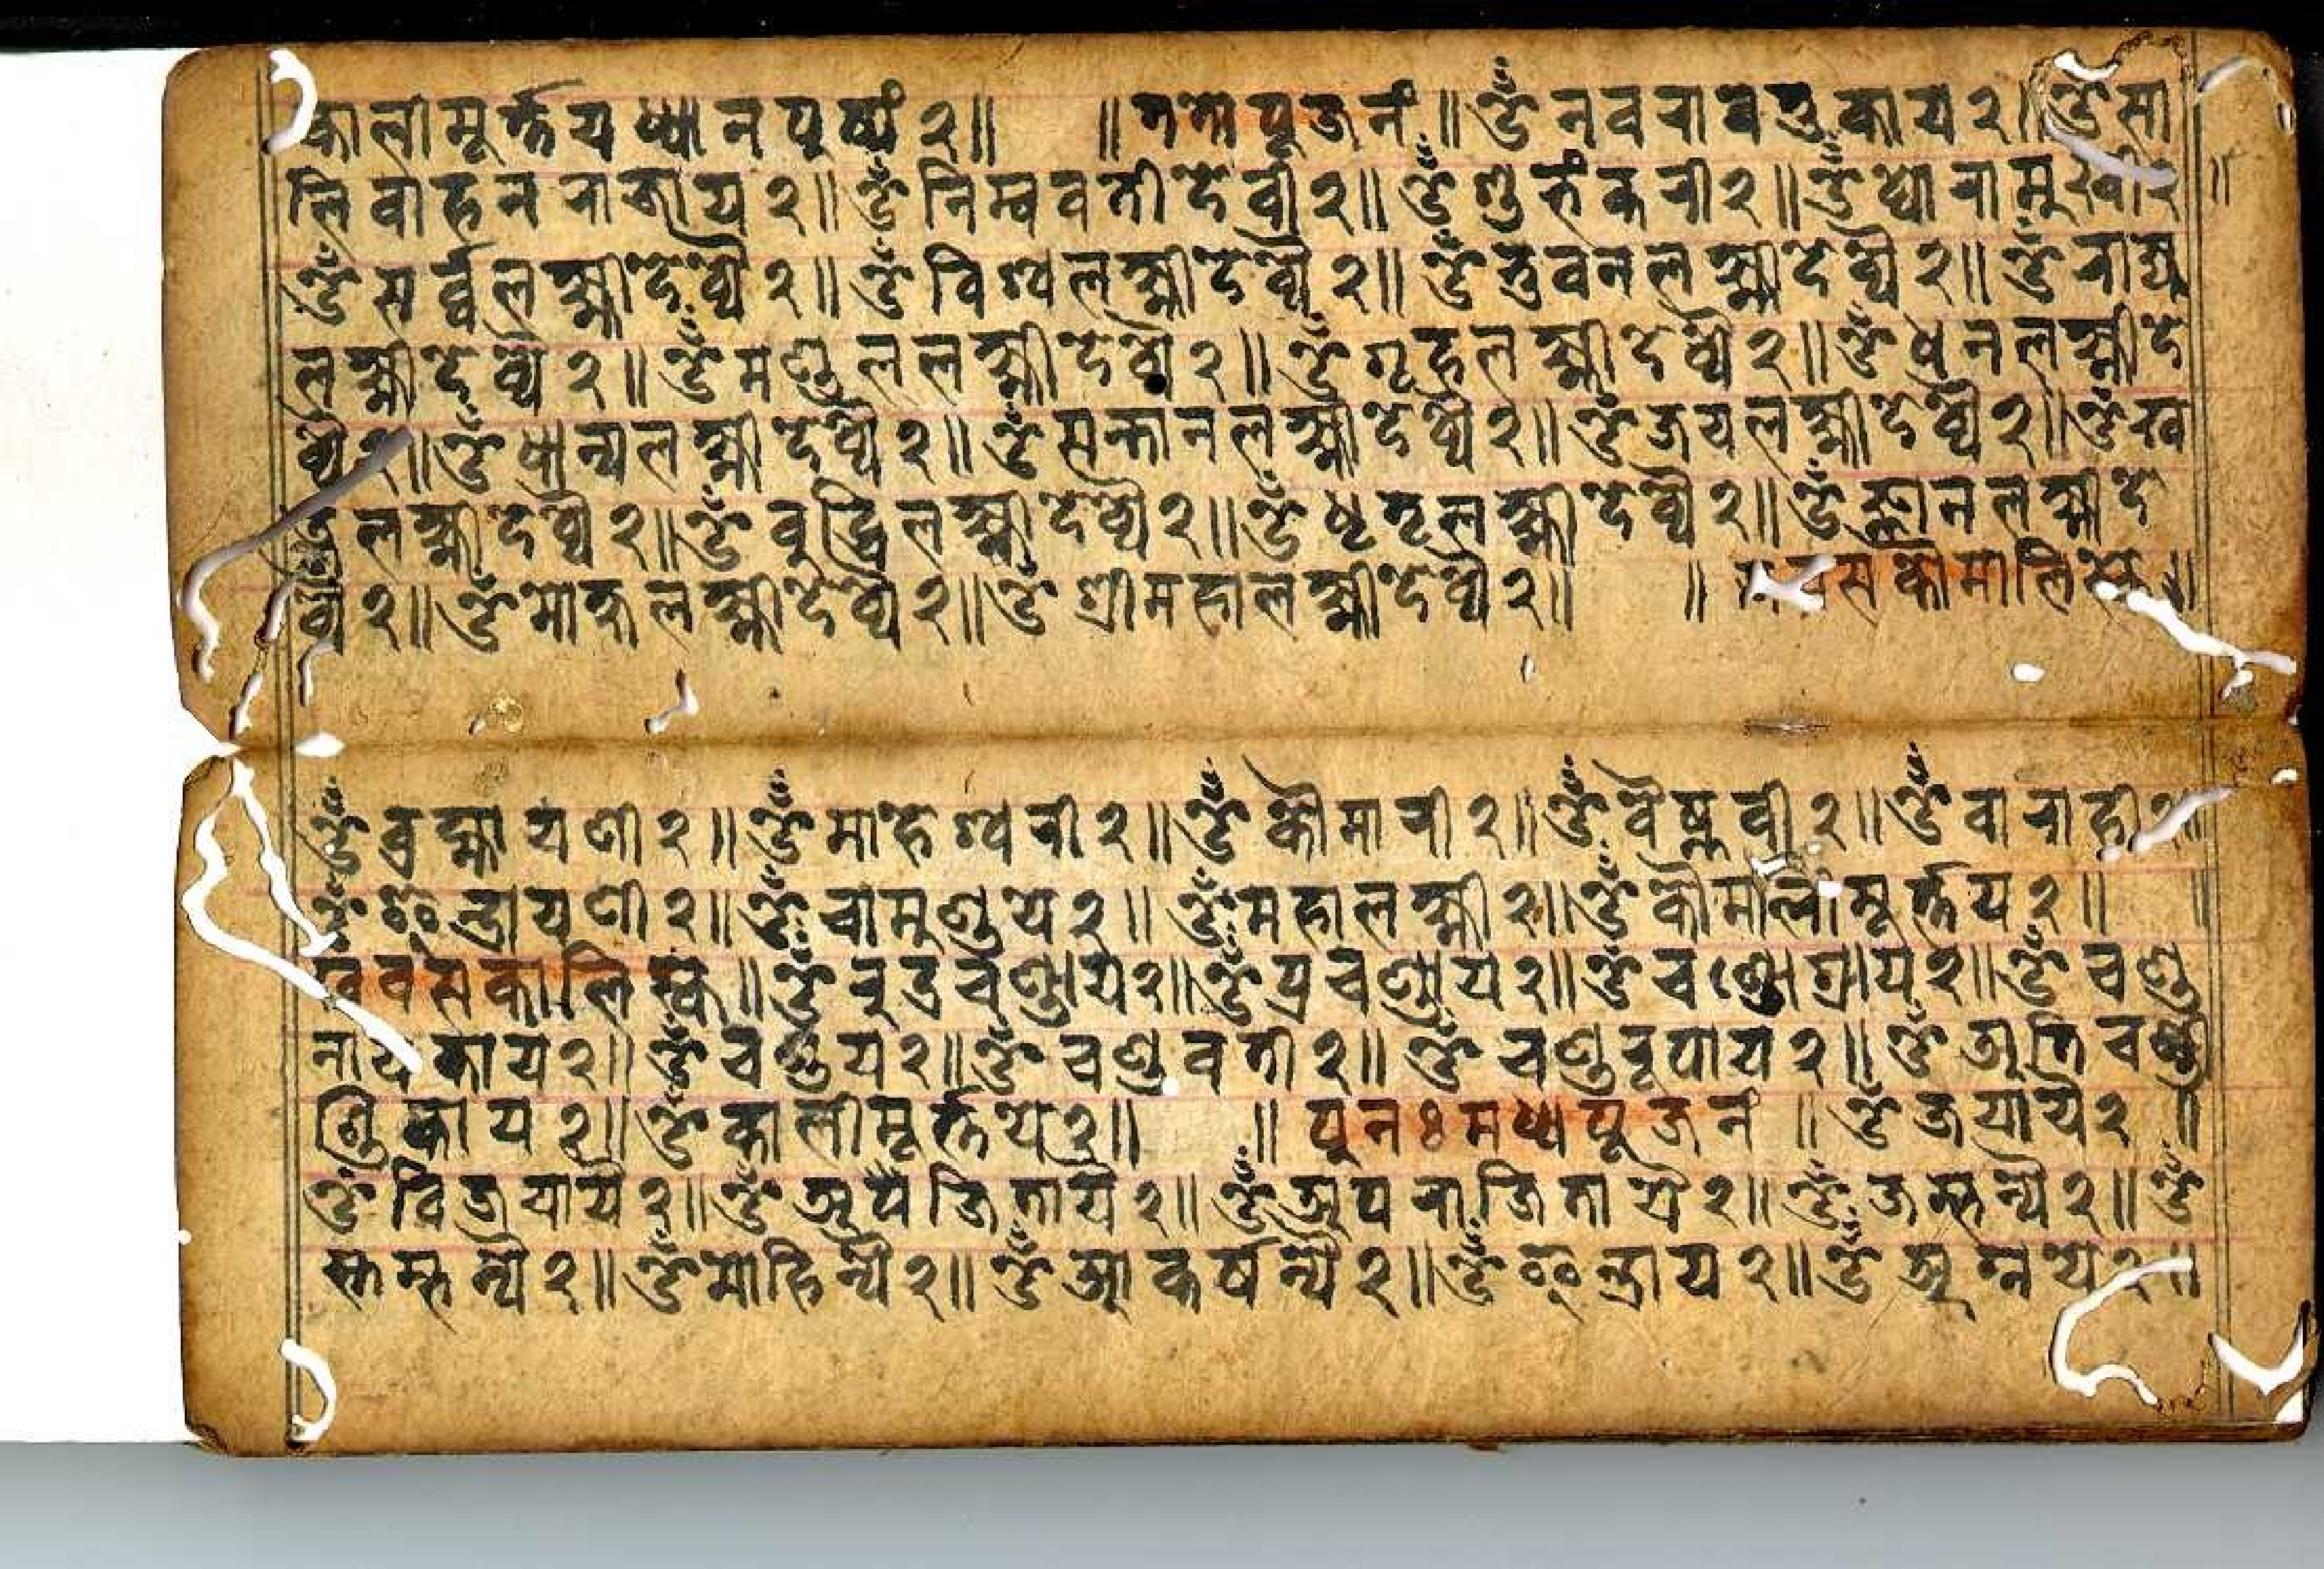 कालीमूर्त्तय ध्यान पुष्पं २॥ ॥ ततो पूजनं ॥ ॐ नवरात्रवतुकाय २॥ ॐ सा
लिवाहन राजाय २॥ ॐ निम्ववती देवी २॥ ॐ शुभंकरी २॥ ॐ घोरामुखी २॥
ॐ सर्व्वलक्ष्मीदेव्यै २॥ ॐ विश्वलक्ष्मीदेव्यै २॥ ॐ भुवनलक्ष्मीदेव्यै २॥ ॐ राज्य
लक्ष्मीदेव्यै २॥ ॐ मण्डललक्ष्मीदेव्यै २॥ ॐ गृहलक्ष्मीदेव्यै २॥ ॐ धनलक्ष्मीदे
व्यै २॥ ॐ धान्यलक्ष्मीदेव्यै २॥ ॐ सन्तानलक्ष्मीदेव्यै २॥ ॐ जयलक्ष्मीदेव्यै २॥ ॐ ख
लक्ष्मीदेव्यै २॥ ॐ वुद्धिलक्ष्मीदेव्यै २॥ ॐ धृतृलक्ष्मीदेव्यै २॥ ॐ ज्ञानलक्ष्मीदे
व्यै २॥ ॐ मोक्षलक्ष्मीदेव्यै २॥ ॐ श्रीमहालक्ष्मीदेव्यै २॥ ॥
ॐ व्रह्मायणी २॥ ॐ माहेश्वरी २॥ ॐ कौमारी २॥ ॐ वैष्णवी २॥ ॐ वाराही २॥
ॐ इन्द्रायणी २॥ ॐ चामुण्डाय २॥ ॐ महालक्ष्मी २॥ ॐ कौमालीमूर्त्तय २॥ ॥
खवस कालिस्के ॥ ॐ रुद्रचण्डाय २॥ ॐ प्रचण्डाय २॥ ॐ चण्डोग्राय २॥ ॐ चण्ड
नायकाय २॥ ॐ चण्डाय २॥ ॐ चण्डवती २॥ ॐ चण्डरूपाय २॥ ॐ अतिचण्डी
ण्डिकाय २॥ ॐ कालीमूर्त्तय २॥ ॥ पुनः मध्य पूजनं ॥ ॐ जयायै २॥
ॐ विजयायै २॥ ॐ अपजितायै २॥ ॐ अपराजितायै २॥ ॐ जम्भन्यै २॥ ॐ
स्तम्भन्यै २॥ ॐ मोहिन्यै २॥ ॐ आकर्षन्यै २॥ ॐ इन्द्राय २॥ ॐ अग्नय २॥